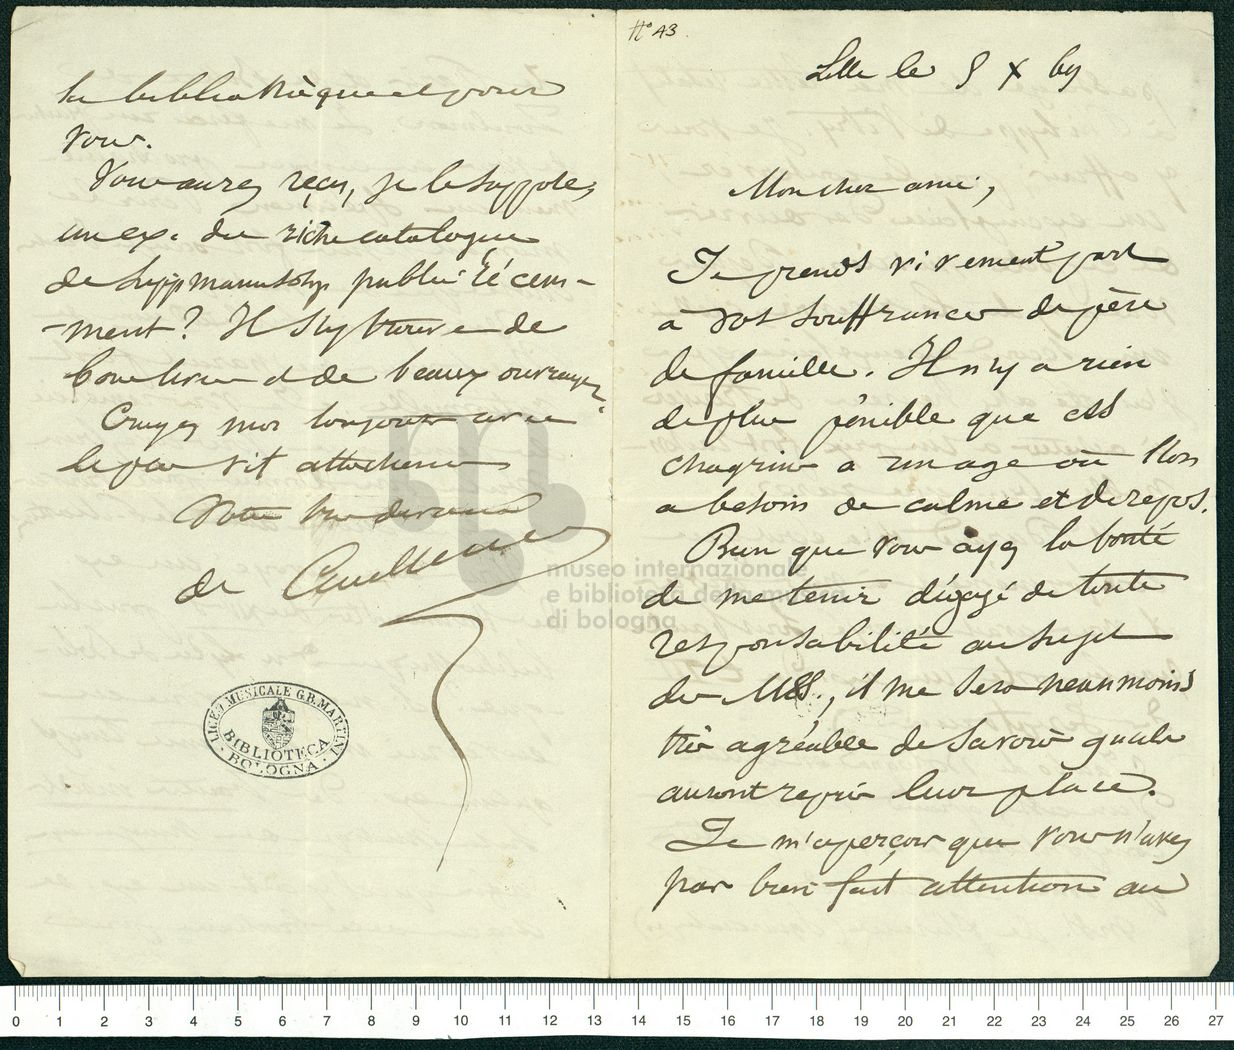 N° 43
Lille le 5 X 69
Mon cher ami,
Je prends vivement part
à vos souffrances de père
de famille. Il n'y a rien
de plus pénible que ces
chagrins a un age où l'on
a besoin de calme et de repos.
Bien que vous ayez la bonté
de me tenir dégagé de toute
responsabilité au sujet
des MSS., il me sera neanmoins
très agréable de savoir qu'ils
auront repris leur place.
Je m'aperçois que vous n'avez
pas bien fait attention au
la bibliothèque et pour
vous.
Vous aurez reçu, je le suppose,
un ex. du riche catalogue
de Lippmannsohn publié récem-
-ment? Il s'y trouve de
bons livres et de beaux ouvrages.
Croyez moi toujours avec
le plus vif attachement
Votre bien devoué
de Coussemaker
LICEO MUSICALE G.B. MARTINI
BIBLIOTECA
BOLOGNA
museo internazionale
e biblioteca della musica
di bologna
0 1 2 3 4 5 6 7 8 9 10 11 12 13 14 15 16 17 18 19 20 21 22 23 24 25 26 27